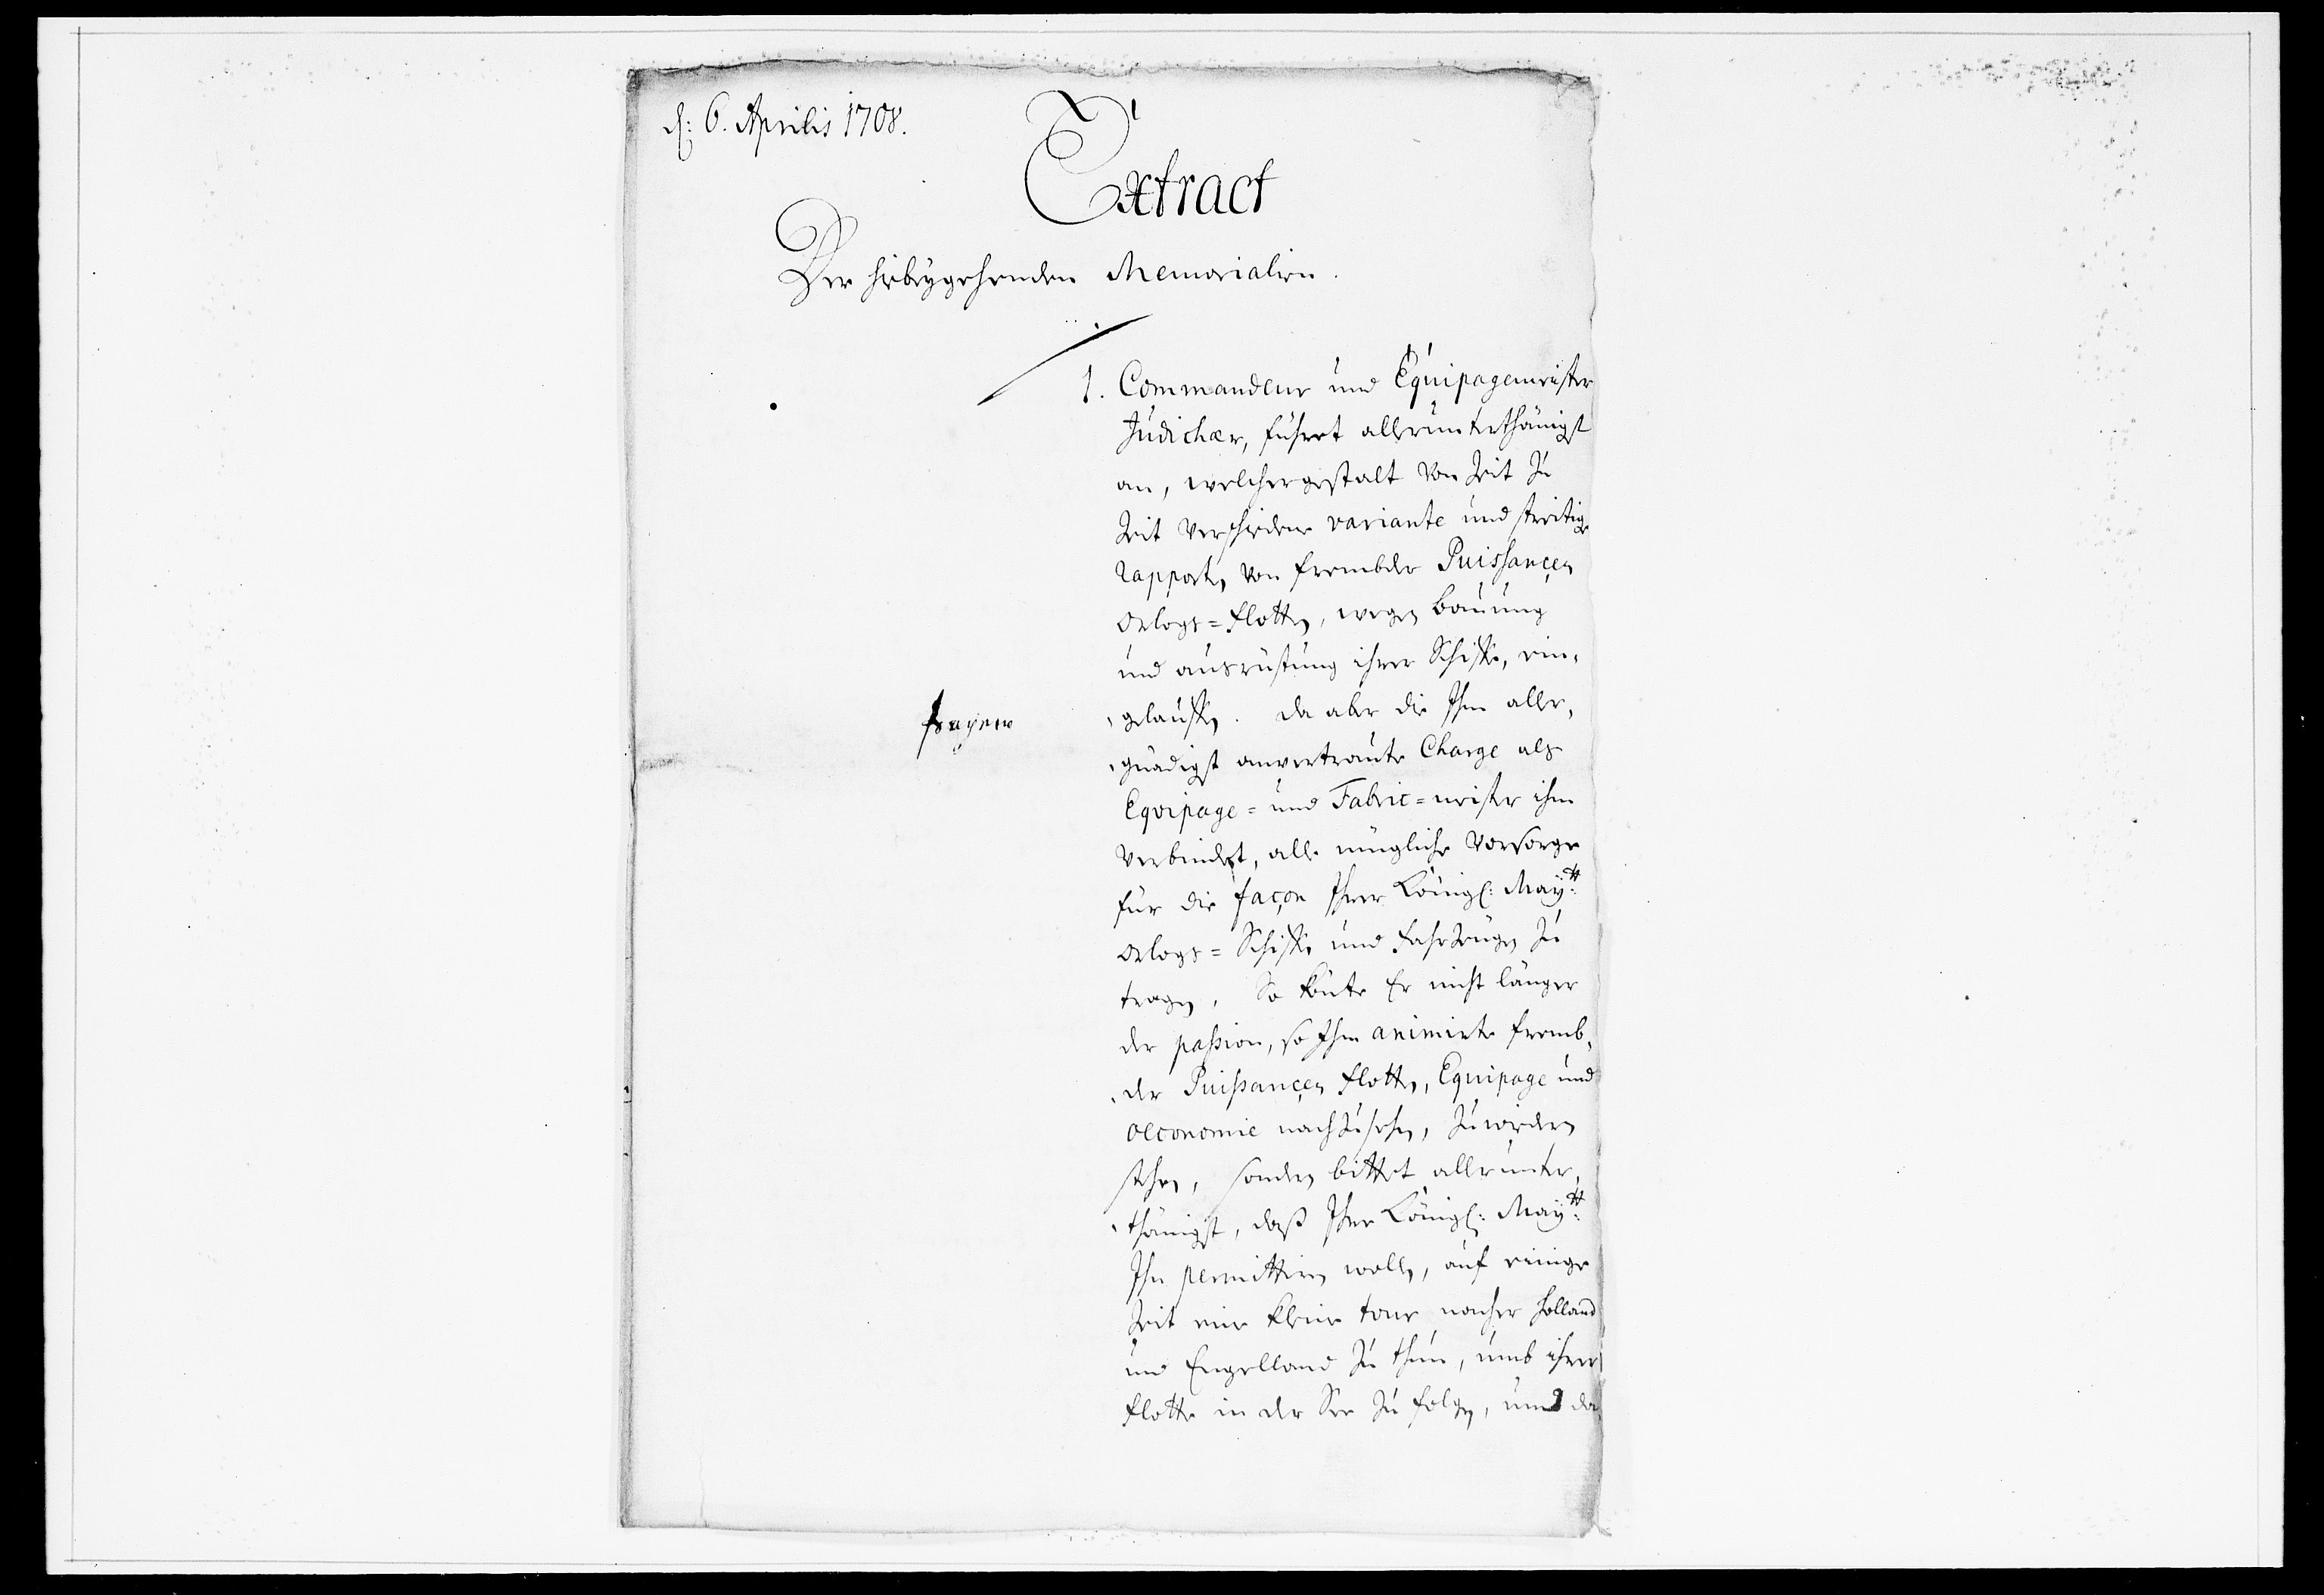 d: 6. Aprilis 1708.
Extract
Der hiebeygehenden Memorialien.
1. Commandeur und Equipagemeister
Judichær, führet allerunterthänigst
an, welchergestalt von Zeit zu
Zeit verschiedene variante und streitige
rapporten von frembder Puissançen
Orlogs=flotten, wegen bauung
und ausrüstung ihrer Schiffe, ein-
gelauffen. Da aber die Ihm aller-
gnädigst anvertraute Charge als
Eqvipage= und Fabric=meister ihm
verbindet, alle mügliche Vorsorge
für die façon Ihrer Königl: Maytt:
Orlogs=Schiffe und fahrzeugen zu
tragen, So könte Er nicht länger
der passion, so Ihm animirte fremb-
der Puissançen flotten, Equipage und
oeconomie nachzusehen, zuwieder
stehen, sondern bittet allerunter-
thänigst, daß Ihre Königl: Maytt:
Ihn permittiren wollen, auf einige
Zeit eine kleine tour nacher Holland
und Engelland zu thun, umb ihrer
flotte in der See zu folgen, und da